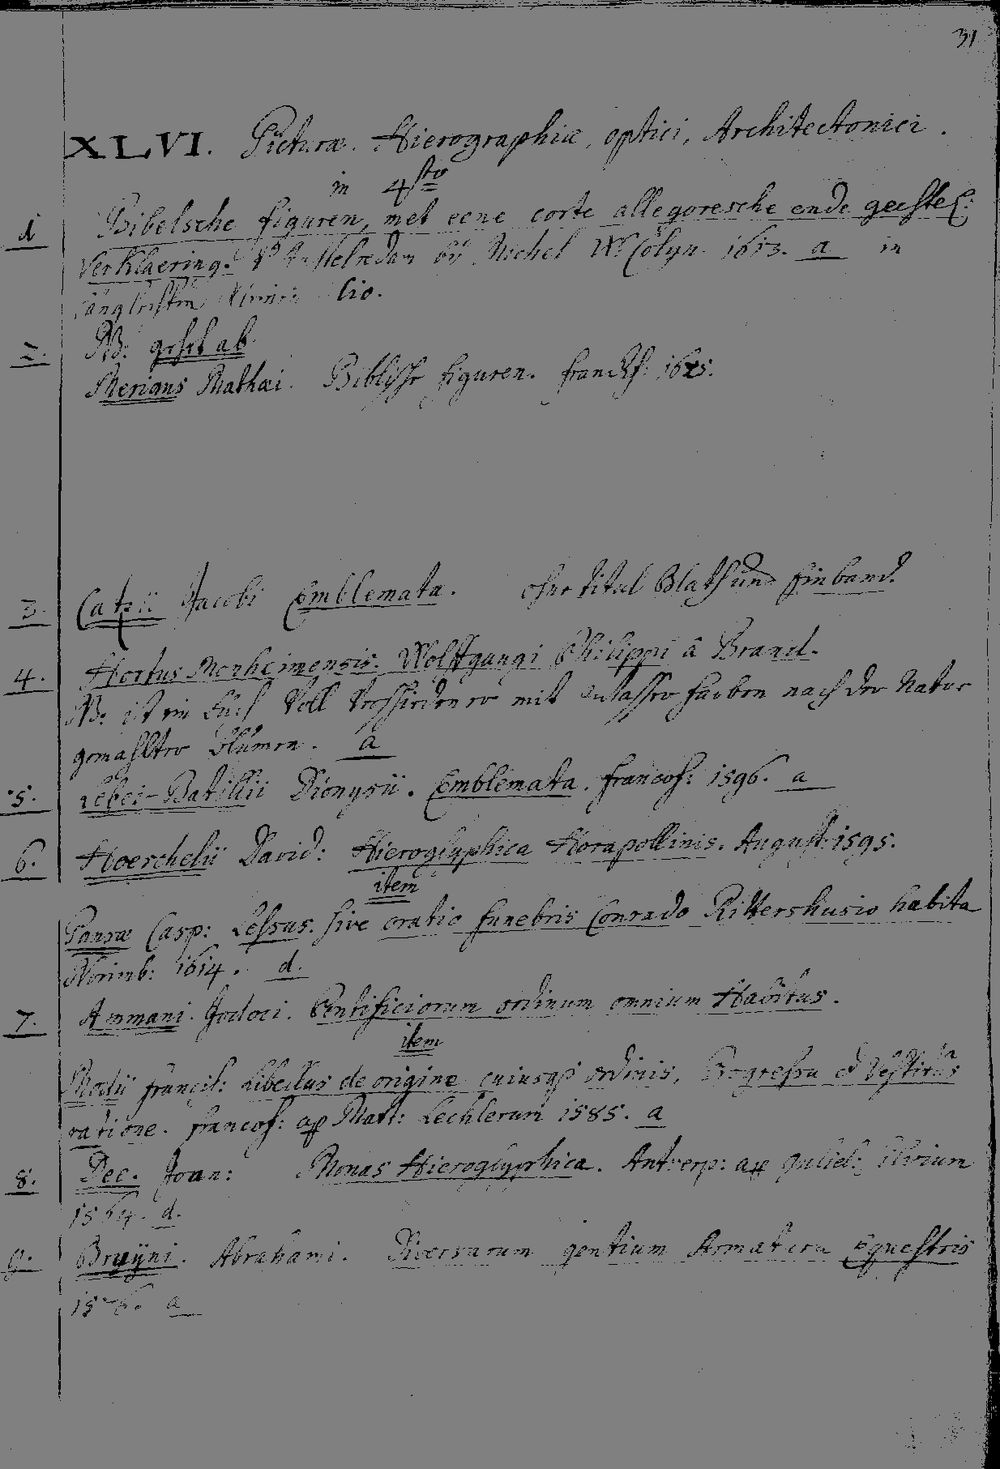 31
XLVI. Picturæ. Hierographiæ, optici, Architectonici.
in 4sto
1 Bibelsche figuren, met eene corte allegoresche ende geestel:
Verklaering. bÿ Michel Colyn 1613. a in
lio.
2. NB: gehet ab
Merians Mathæi. Biblische figuren. Franckf: 1625.
3. Catzii Jacobi Emblemata. ohne titul Blath und Einband.
4. Hortus Monheimensis. Wolffgangi Philippi â Brand.
NB. ist ein Buch Voll Verschiedener mit wasser farben nach der Natur
gemahlter blumen. a
5. Lebei-Batillii Dionysii. Emblemata. francof: 1596. a
6. Hoerchelii David: Hieroglyphica Horapollinis. August. 1595.
item
Panzæ Casp: Lessus. sive oratio funebris Conrado Rittershusio habita
Norimb: 1614. d.
7. Ammani. Jodoci. Pontificiorum ordinum omnium Habitus.
item
Modii francisc: Libellus de origine cuiusqs ordinis, Progressu et Vestitus
ratione. francof: ap Mart: Lechlerum 1585. a
8. Dee. Joan: Monas Hieroglyphica. Antverp: ap Guliel: Silvium
1564. d.
9. Bruÿni. Abrahami. Diversarum gentium Armatura Equestris
1576. a